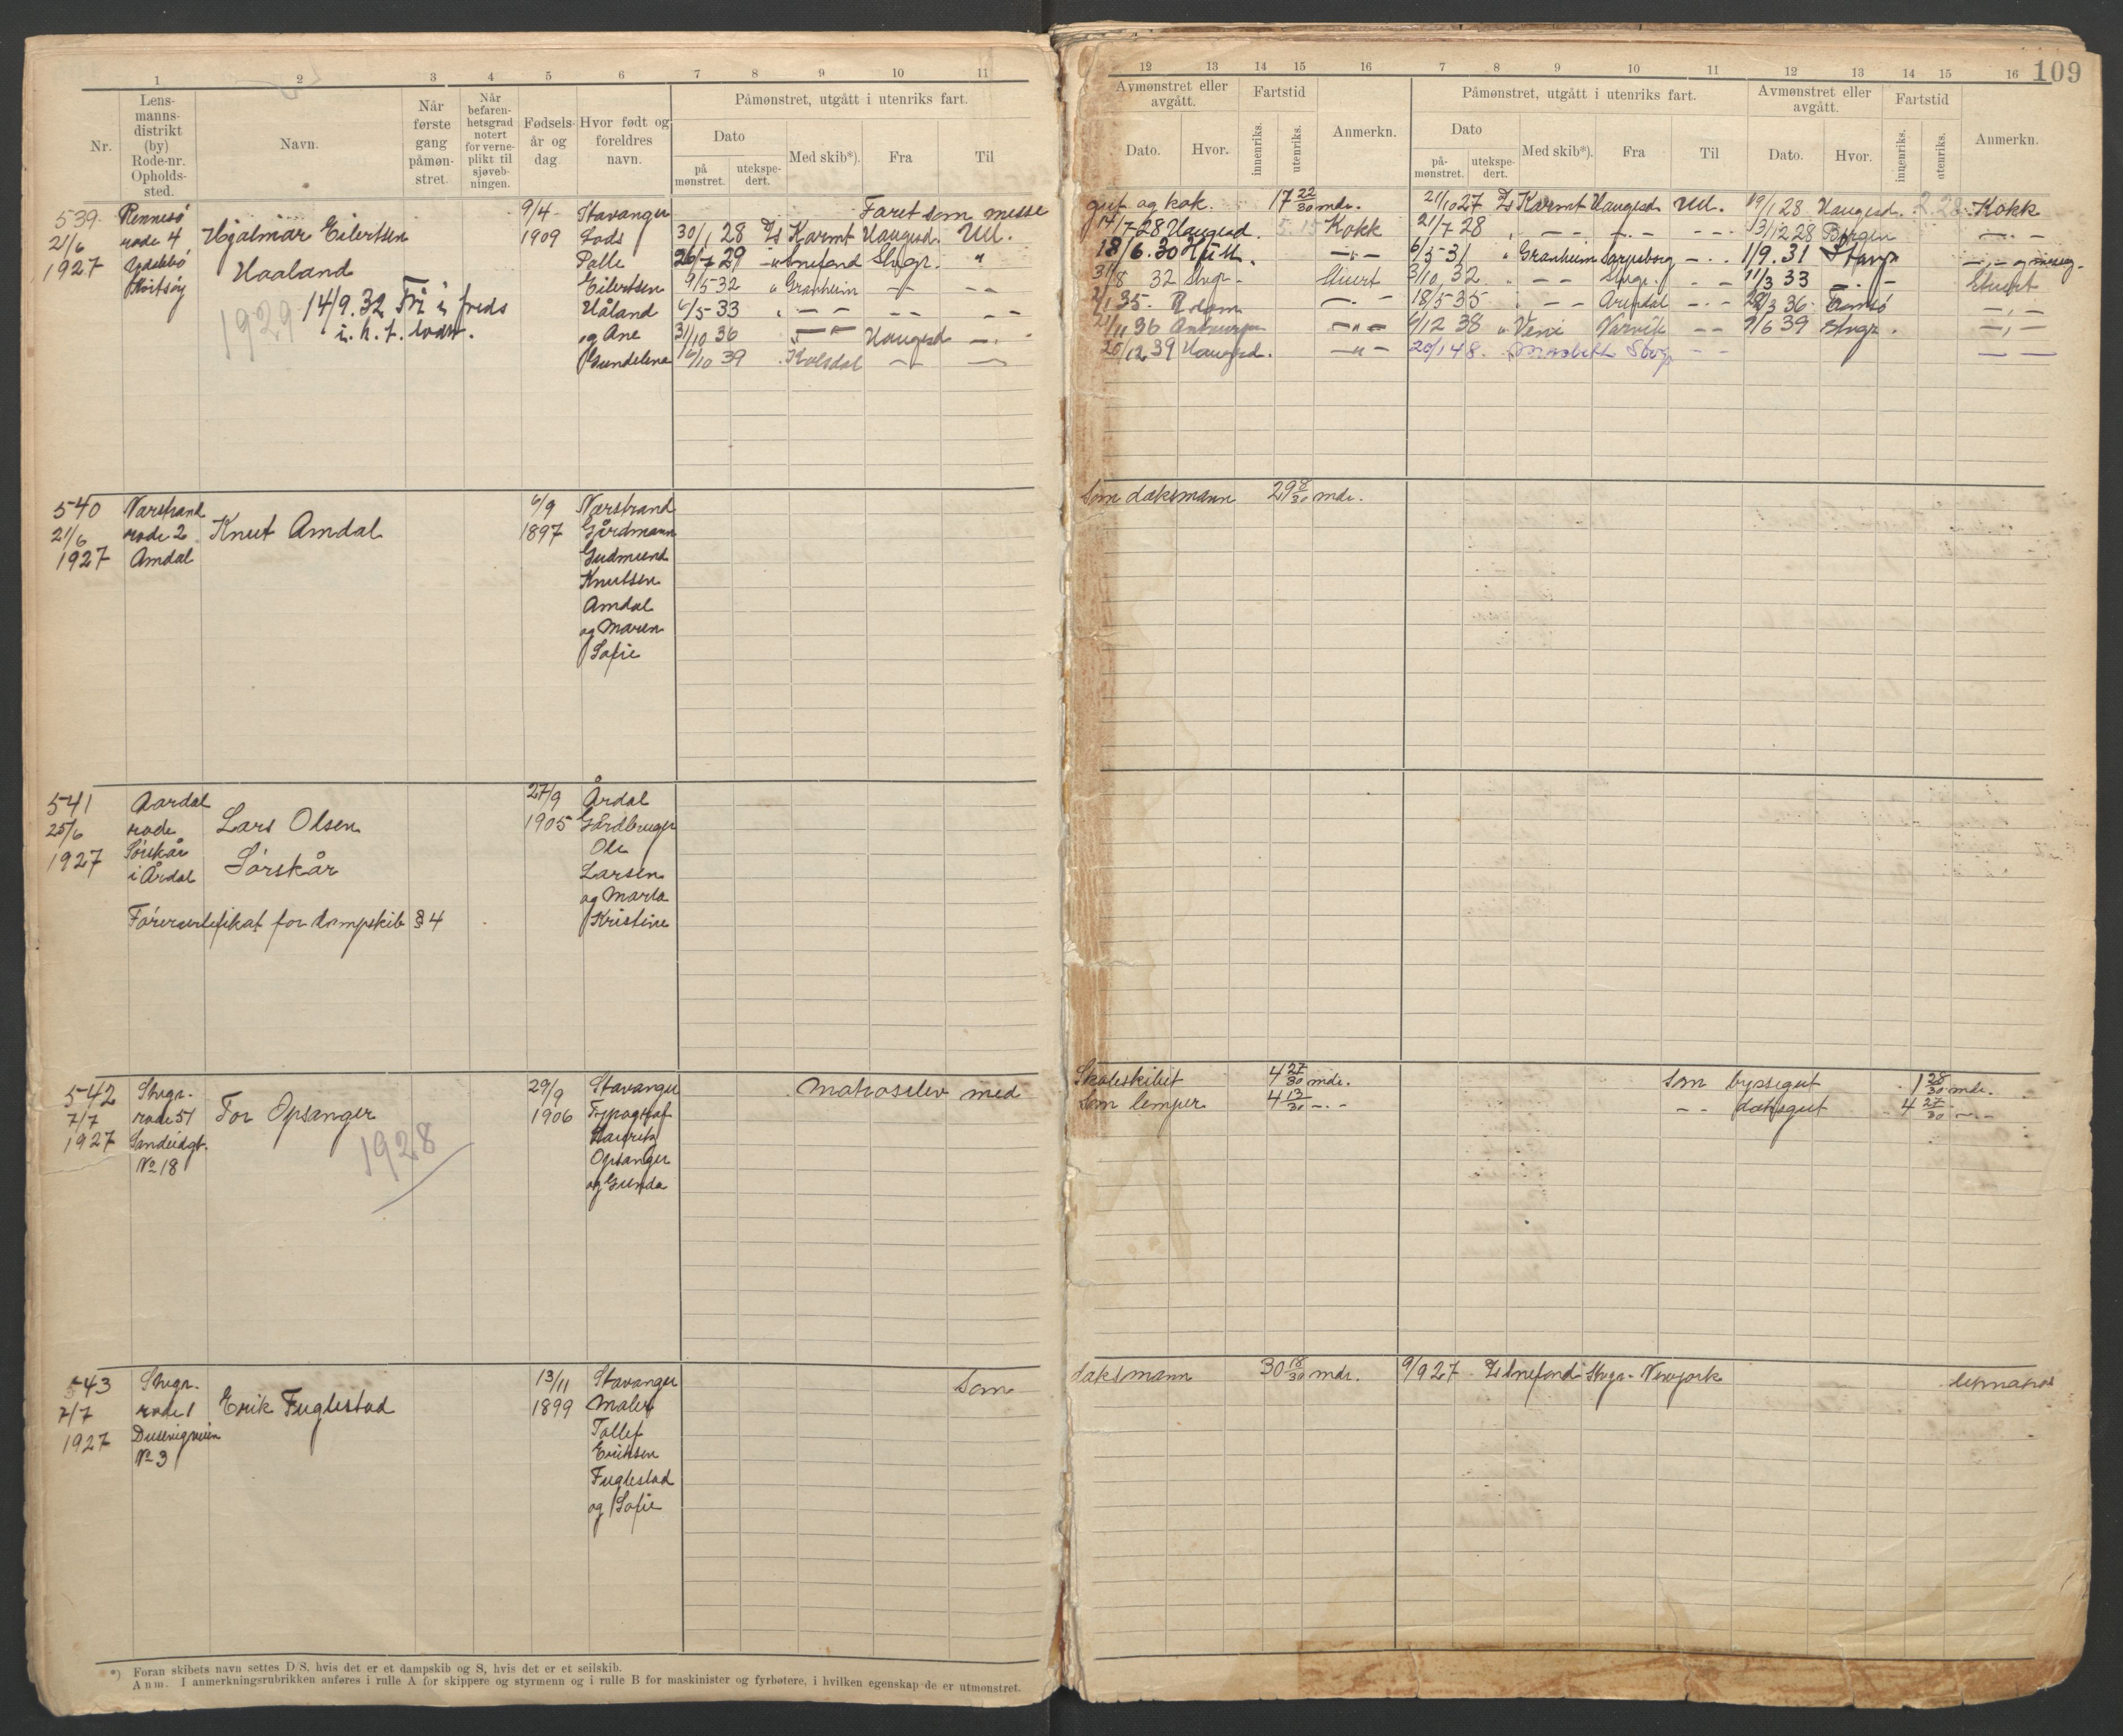 109
1 2 3 4 5 6 7 8 9 10 11
Nr.
Lens-
manns-
distrikt
(by)
Rode-nr.
Opholds-
sted.
Navn.
Når
første
gang
påmøn-
stret.
Når
befaren-
hetsgrad
notert
for verne-
plikt til
sjøveb-
ningen.
Fødsels-
år og
dag
Hvor født og
foreldres
navn.
Påmønstret, utgått i utenriks fart.
Dato
på
mønstret.
utekspe-
dert.
Med skib*).
Fra
Til
12 13 14 15 16 7 8 9 10 11 12 13 14 15 16
Avmønstret eller
avgått.
Dato.
Hvor.
Fartstid
innenriks.
utenriks.
Anmerkn.
Påmønstret, utgått i utenriks fart.
Dato
på-
mønstret.
utekspe-
dert.
Med skib*).
Fra
Til
Avmønstret eller
avgått.
Dato.
Hvor.
Fartstid
innenriks.
utenriks.
Anmerkn.
539
21/6
1927
Rennesø
rode 4
Hjalmar Eilertsen
Haaland
1929
14/9.32 Fri i freds
9/4
1909
Stavanger
Lods
Palle
Eilertsen
Håland
og Ane
Gundelena
Faret som messe
30/1 28 D/s Karmt Haugesd. Utl.
26/7 29 Stvgr. "
9/5-32 " Granheim - -
6/5-33 " - - - -
31/10 36 Haugesd - -
16/10 39 Kolsdal - -
gut og kok. 17 22/30 mdr. 21/10 27 D/s Karmt Haugesd Utl. 19/1 28 Haugesd. 2.28 Kokk
14/7-28 Haugesd. 5.15 Kokk 21/7 28 " - - - - 13/12 28 Bergen - -
18/6.30 6/5-31 " Granheim Sarpsborg - - 11/9.31 Stavgr
31/8 32 Stvgr - Stuert 3/10 32 " - - Stvgr. - - 11/3 33 - - Stuert
2/1 35 - - 18/5 35 " - - Arendal - - 28/3 36 Tromsø - -
21/11 36 Antwerpen - " - 9/12 38 " Veni Narvik - - 9/6 39 Stvgr. - -
20/12 39 Haugesd. - " - 20/1 48. Stvgr - -
540
21/6
1927
Nærstrand
rode 2
Amdal
Knut Amdal
6/9
1897
Nærstrand
Gårdmann
Gudmund
Knutsen
Amdal
og Maren
Sofie
Som dæksmann 29 8/30 mdr.
541
25/6
1927
Aardal
rode
Sørskår
i Årdal
Lars Olsen
Sørskår
Førercertifikat for dampskib § 4
27/9
1905
Årdal
Gårdbruger
Ole
Larsen
og Marta
Kristine
542
7/7
1927
Stvgr.
rode 51
Sandeidgt.
No 18
Tor Opsanger
1928
29/9
1906
Stavanger
Typograf
Hauritz
Opsanger
og Gunda
Matroselev med
Skoleskibet 4 27/30 mdr. som byssegut 1 28/30 mdr.
som lemper 4 13/30 - - - - dæksgut 4 27/30 - -
543
7/7
1927
Stvgr.
rode 1
Dusevigveien
No 3
Erik Fuglestad
13/11
1899
Stavanger
Maler
Tollef
Eriksen
Fuglestad
og Sofie
Som
dæksmann 30 18/30 mdr. 9/9 27 D/s Snefond Stvgr. Newyork letmatros
*) Foran skibets navn settes D/S, hvis det er et dampskib og S, hvis det er et seilskib.
Anm. I anmerkningsrubrikken anføres i rulle A for skippere og styrmenn og i rulle B for maskinister og fyrbøtere, i hvilken egenskap de er utmønstret.